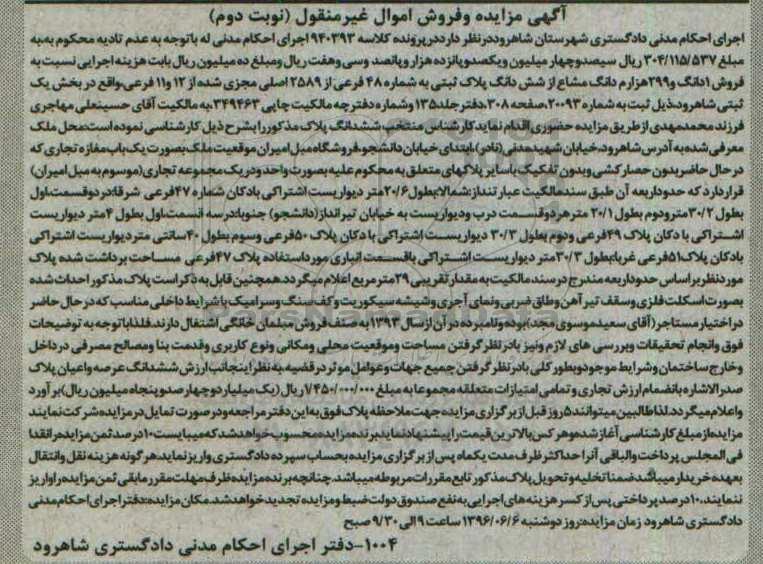 آگهی مزایده وفروش اموال غیرمنقول (نوبت دوم)
اجرای احکام مدنی دادگستری شهرستان شاهروددرنظر دارددرپرونده کلاسه ۹۴۰۳۹۳ اجرای احکام مدنی له باتوجه به عدم تادیه محکوم به،به
مبلغ ۳۰۴/۱۱۵/۵۳۷ ریال سیصدوچهار میلیون ویکصدوپانزده هزار وپانصد وسی وهفت ریال ومبلغ ده میلیون ریال بابت هزینه اجرایی نسبت به
فروش ۱دانگ و۲۹۹هزارم دانگ مشاع از شش دانگ پلاک ثبتی به شماره ۴۸ فرعی از ۲۵۸۹ اصلی مجزی شده از ۱۲ و۱۱ فرعی،واقع در بخش یک
ثبتی شاهرود،ذیل ثبت به شماره ۲۰۰۹۳،صفحه ۳۰۸،دفترجلد۱۳۵ وشماره دفترچه مالکیت چاپی ۳۴۹۴۶۳،به مالکیت آقای حسینعلی مهاجری
فرزند محمدمهدی ازطریق مزایده حضوری اقدام نماید.کارشناس منتخب ششدانگ پلاک مذکوررا بشرح ذیل کارشناسی نموده است:محل ملک
معرفی شده به آدرس شاهرود،خیابان شهیدمدنی(نادر)،ابتدای خیابان دانشجو،فروشگاه مبل امیران موقعیت ملک بصورت یک باب مغازه تجاری که
درحال حاضربدون حصارکشی وبدون تفکیک باسایر پلاکهای متعلق به محکوم علیه بصورت واحد ودریک مجموعه تجاری(موسوم به مبل امیران)
قراردارد که حدوداربعه آن طبق سندمالکیت عبارتنداز:شمالا:بطول۲۰/۶متر دیواریست اشتراکی بادکان شماره ۴۷فرعی شرقا:دردوقسمت،اول
بطول ۳۰/۲مترودوم بطول ۲۰/۱ مترهردوقسمت درب ودیواریست به خیابان تیرانداز(دانشجو) جنوبا:درسه قسمت،اول بطول ۴متر دیواریست
اشتراکی با دکان پلاک ۴۹فرعی ودوم بطول ۳۰/۳ دیواریست اشتراکی با دکان پلاک ۵۰فرعی وسوم بطول ۴۰سانتی متردیواریست اشتراکی
بادکان پلاک۵۱فرعی غربا:بطول ۳۰/۳متر دیواریست اشتراکی باقسمت انباری مورداستفاده پلاک ۴۷فرعی مساحت برداشت شده پلاک
موردنظربراساس حدوداربعه مندرج درسندمالکیت به مقدارتقریبی ۲۹مترمربع اعلام میگردد.همچنین قابل به ذکراست پلاک مذکوراحداث شده
بصورت اسکلت فلزی وسقف تیرآهن وطاق ضربی ونمای آجری وشیشه سیکوریت وکف سنگ وسرامیک باشرایط داخلی مناسب که درحال حاضر
دراختیارمستاجر(آقای سعیدموسوی مجد)بوده ونامبرده درآن ازسال ۱۳۹۳به صنف فروش مبلمان خانگی اشتغال دارند.فلذاباتوجه به توضیحات
فوق وانجام تحقیقات وبررسی های لازم ونیز بادرنظرگرفتن مساحت وموقعیت محلی ومکانی ونوع کاربری وقدمت بنا ومصالح مصرفی درداخل
وخارج ساختمان وشرایط موجودوبطورکلی بادرنظرگرفتن جمیع جهات وعوامل موثردرقضیه به نظراینجانب ارزش ششدانگ عرصه واعیان پلاک
صدرالاشاره بانضمام ارزش تجاری وتمامی امتیازات متعلقه مجموعا به مبلغ ۱/۴۵۰/۰۰۰/۰۰۰ریال(یک میلیاردوچهارصدوپنجاه میلیون ریال)برآورد
واعلام میگردد.لذاطالبین میتوانند۵روز قبل ازبرگزاری مزایده جهت ملاحظه پلاک فوق به این دفترمراجعه ودرصورت تمایل درمزایده شرکت نمایند
مزایده ازمبلغ کارشناسی آغازشده وهرکس بالاترین قیمت راپیشنهادنماید برنده مزایده محسوب خواهدشد که میبایست ۱۰درصدثمن مزایده رانقدا
فی المجلس پرداخت والباقی آنراحداکثر ظرف مدت یکماه پس ازبرگزاری مزایده بحساب سپرده دادگستری واریزنماید.هرگونه هزینه نقل وانتقال
بعهده خریدارمیباشد.ضمناتخلیه وتحویل پلاک مذکورتابع مقررات مربوطه میباشد.چنانچه برنده مزایده ظرف مهلت مقررمابقی ثمن مزایده راواریز
ننمایند،۱۰درصدپرداختی پس ازکسر هزینه های اجرایی به نفع صندوق دولت ضبط ومزایده تجدیدخواهدشد.مکان مزایده:دفتراجرای احکام مدنی
دادگستری شاهرود زمان مزایده:روز دوشنبه ۱۳۹۶/۰۶/۶ ساعت ۹الی ۹/۳۰ صبح
۱۰۰۴-دفتر اجرای احکام مدنی دادگستری شاهرود